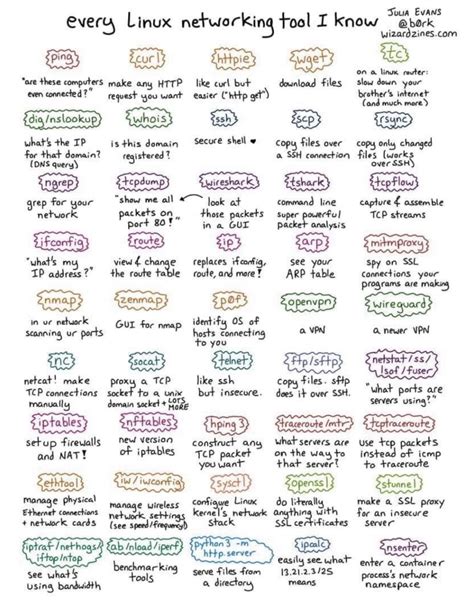 every Linux networking tool I know
JULIA EVANS
@b0rk
wizardzines.com
ping
"are these computers
even connected?"
curl
make any HTTP
request you want
httpie
like curl but
easier ("http get")
wget
download files
tc
on a linux router:
slow down your
brother's internet
(and much more)
dig/nslookup
what's the IP
for that domain?
(DNS query)
whois
is this domain
registered?
ssh
secure shell ♥
scp
copy files over
a SSH connection
rsync
copy only changed
files (works
over SSH)
ngrep
grep for your
network
tcpdump
"show me all
packets on
port 80!"
wireshark
look at
those packets
in a GUI
tshark
command line
super powerful
packet analysis
tcpflow
capture & assemble
TCP streams
ifconfig
"what's my
IP address?"
route
view & change
the route table
ip
replaces ifconfig,
route, and more!
arp
see your
ARP table
mitmproxy
spy on SSL
connections your
programs are making
nmap
in ur network
scanning ur ports
zenmap
GUI for nmap
p0f
identify OS of
hosts connecting
to you
openvpn
a VPN
wireguard
a newer VPN
nc
netcat! make
TCP connections
manually
socat
proxy a TCP
socket to a unix
domain socket + LOTS
MORE
telnet
like ssh
but insecure.
ftp/sftp
copy files. sftp
does it over SSH.
netstat/ss/
lsof/fuser
"what ports are
servers using?"
iptables
set up firewalls
and NAT!
nftables
new version
of iptables
hping3
construct any
TCP packet
you want
traceroute/mtr
what servers are
on the way to
that server?
tcptraceroute
use tcp packets
instead of icmp
to traceroute
ethtool
manage physical
Ethernet connections
+ network cards
iw/iwconfig
manage wireless
network settings
(see speed/frequency)
sysctl
configure Linux
kernel's network
stack
openssl
do literally
anything with
SSL certificates
stunnel
make a SSL proxy
for an insecure
server
iptraf/nethogs/
iftop/ntop
see what's
using bandwidth
ab/nload/iperf
benchmarking
tools
python3 -m
http.server
serve files from
a directory
ipcalc
easily see what
13.21.2.3/25
means
nsenter
enter a container
process's network
namespace